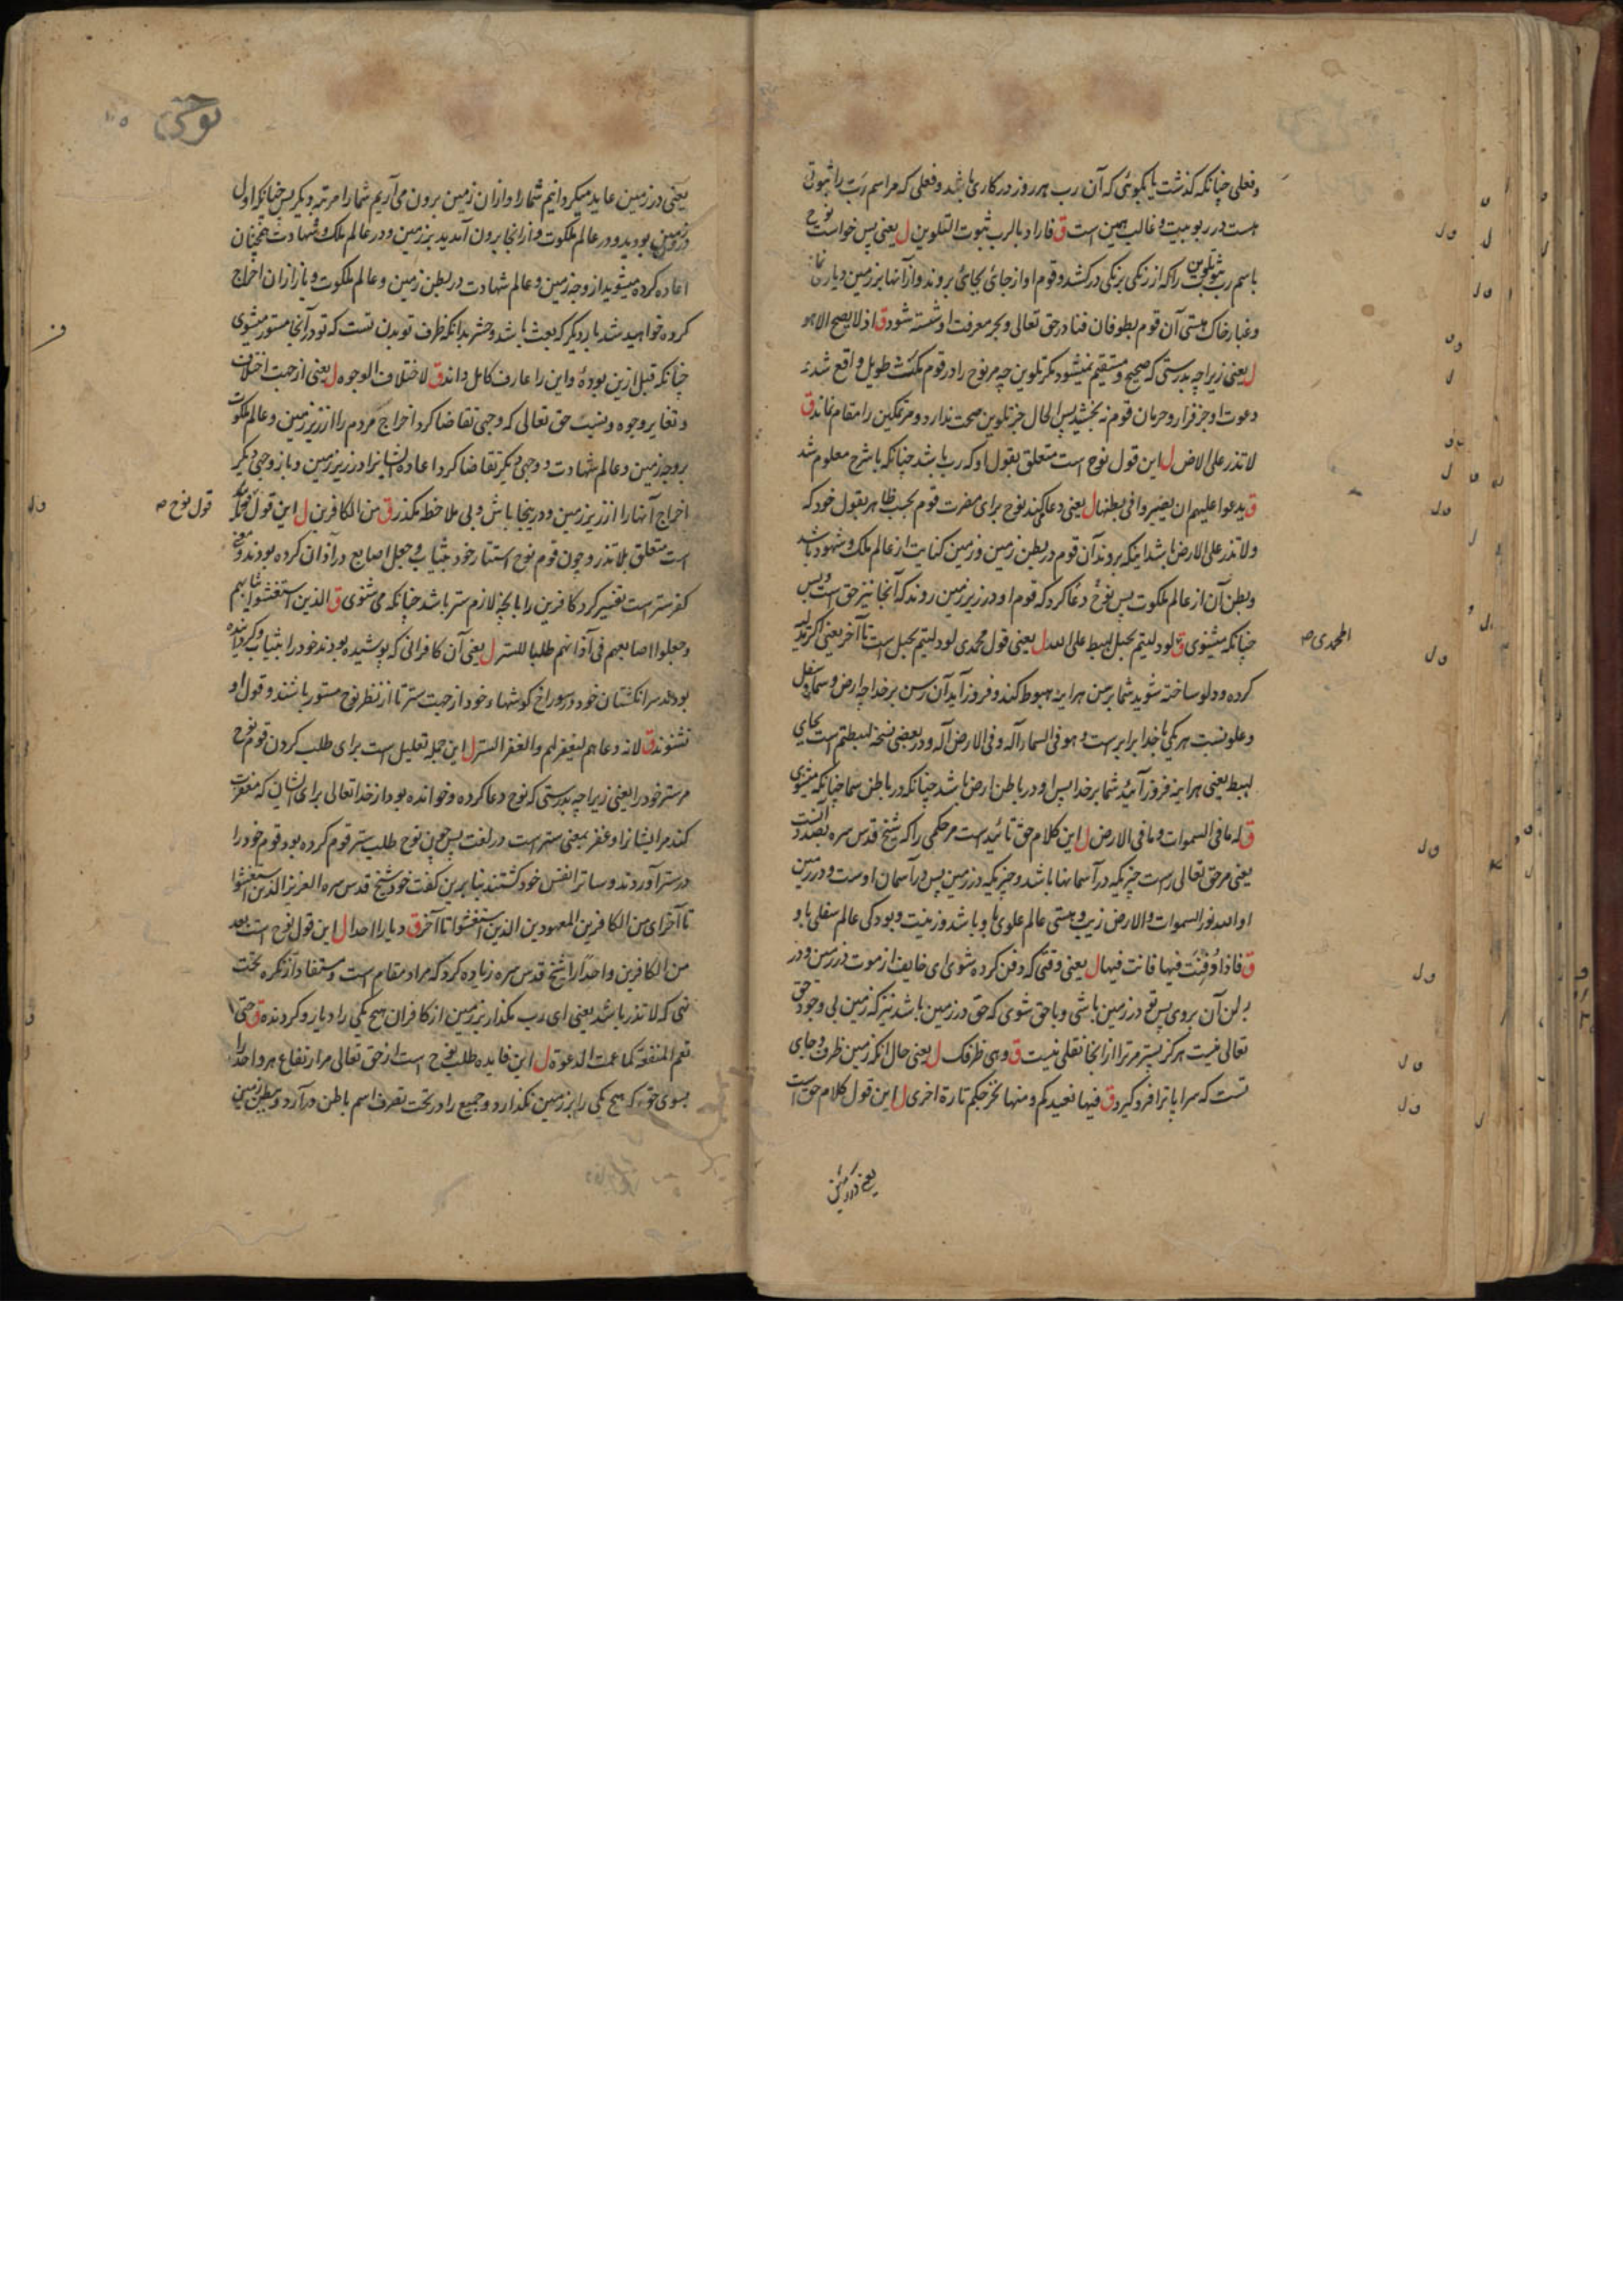 وفعلی چنانکه کذشت یا بکوئی که آن رب هر روز در کاری باشد وفعلی که مر اسم رب را ثبوتی
هست در ربوبیت وغالب همین است ق فاراد بالرب ثبوت التلوین ل یعنی پس خواست نوح
باسم رب ثبوت تلوین را که از رنکی برنکی درکشد وقوم او از جائی بجائی بروند واز آنها بر زمین دیار نماند
وغبار خاک هستی آن قوم بطوفان فنا در حق تعالی وبحر معرفت او شسته شود ق اذ لا یصح الا هو
ل یعنی زیرا چه بدرستی که صحیح ومستقیم نمیشود مکر تلوین چه مر نوح را در قوم مکث طویل واقع شد نه
دعوت او جز فرار وحرمان قوم نه بخشید پس الحال جز تلوین صحت ندارد ومر تمکین را مقام نماند ق
لا تذر علی الارض ل این قول نوح است متعلق بقول او که رب باشد چنانکه با شرح معلوم شد
ق یدعوا علیهم ان یصیروا فی بطنها ل یعنی دعا میکند نوح برای مضرت قوم بحسب ظاهر بقول خود که
ولا تذر علی الارض باشد اینکه بروند آن قوم در بطن زمین وزمین کنایت از عالم ملک وشهود باشد
وبطن آن از عالم ملکوت پس نوح دعا کرد که قوم او در زیر زمین روند که آنجا نیز حق است وبس
چنانکه میشنوی ق لو دلیتم بحبل لهبط علی الله ل یعنی قول محمدی لو دلیتم بحبل است تا آخر یعنی اکر دلیه
المحمدی صح
کرده ودلو ساخته شوید شما برسن هراینه هبوط کند وفرود آید آن رسن بر خدا چه ارض وسما وسفل
وعلو نسبت هر یکی با خدا برابر است وهو فی السماء اله وفی الارض اله ودر بعضی نسخه لهبطتم است بجای
لهبط یعنی هراینه فرود آئید شما بر خدا پس او در باطن ارض باشد چنانکه در باطن سما چنانکه میشنوی
ق له ما فی السموات وما فی الارض ل این کلام حق تائید است مر حکمی را که شیخ قدس سره بصدد آنست
یعنی مر حق تعالی راست چیزیکه در آسمانها باشد وچیزیکه در زمین پس در آسمان اوست ودر زمین
او الله نور السموات والارض زیب وهستی عالم علوی باو باشد وزینت وبودکی عالم سفلی باو
ق فاذا دفنت فیها فانت فیها ل یعنی وقتی که دفن کرده شوی ای خایف از موت در زمین ودر
بطن آن بروی پس تو در زمین باشی وبا حق شوی که حق در زمین باشد نیز که زمین بی وجود حق
تعالی نیست هرکز پستر مر ترا از آنجا نقلی نیست ق وهی ظرفک ل یعنی حال آنکه زمین ظرف وجای
تست که سراپا ترا فرو کیرد ق فیها نعیدکم ومنها نخرجکم تارة اخری ل این قول کلام حق است
یعنی در زمین
نوحی
یعنی در زمین عاید میکردانیم شما را واز آن زمین برون می آریم شما را مرتبه دیکر پس چنانکه اول
در زمین بودید ودر عالم ملکوت واز آنجا برون آمدید بر زمین ودر عالم ملک وشهادت همچنان
اعاده کرده میشوید از وجه زمین وعالم شهادت در بطن زمین وعالم ملکوت وباز از آن اخراج
کرده خواهید شد بار دیکر که بعث باشد وحشر بدانکه ظرف تو بدن تست که تو در آنجا مستور میشوی
چنانکه قبل ازین بوده واین را عارف کامل داند ق لاختلاف الوجوه ل یعنی از جهت اختلاف
وتغایر وجوه ونسبت حق تعالی که وجهی تقاضا کرد اخراج مردم را از زیر زمین وعالم ملکوت
بر وجه زمین وعالم شهادت ووجهی دیکر تقاضا کرد اعاده ایشان را در زیر زمین وباز وجهی دیکر
اخراج آنها را از زیر زمین ودرینجا باش وبی ملاحظه مکذر ق من الکافرین ل این قول
قول نوح صح
است متعلق بلا تذر وچون قوم نوح استتار خود بثیاب وجعل اصابع در آذان کرده بودند ومعنی
کفر ستر است تفسیر کرد کافرین را بآنچه لازم ستر باشد چنانکه می شنوی ق الذین استغشوا ثیابهم
وجعلوا اصابعهم فی آذانهم طلبا للستر ل یعنی آن کافرانی که پوشیده بودند خود را بثیاب وکردانیده
بودند سر انکشتان خود در سوراخ کوشها خود از جهت ستر تا از نظر نوح مستور باشند وقول او
نشنوند ق لانه دعاهم لیغفر لهم والغفر الستر ل این جمله تعلیل است برای طلب کردن قوم نوح
مر ستر خود را یعنی زیرا چه بدرستی که نوح دعا کرده وخوانده بود از خدا تعالی برای ایشان که مغفرت
کند مر ایشانرا وغفر بمعنی ستر است در لغت پس چون نوح طلب ستر قوم کرده بود قوم خود را
در ستر آوردند وساتر انفس خود کشتند بنا برین کفت خود شیخ قدس سره العزیز الذین استغشوا
تا آخر ای من الکافرین المعهودین الذین استغشوا تا آخر ق دیارا احدا ل این قول نوح است بعد
من الکافرین واحدا را شیخ قدس سره زیاده کرد که مراد مقام است ومستفاد از نکره تحت
نهی که لا تذر باشد یعنی ای رب مکذار بر زمین از کافران هیچ یکی را دیار وکردنده ق حتی
تعم المنفعة کما عمت الدعوة ل این فایده طلب نوح است از حق تعالی مر ارتفاع هر واحد را
بسوی حق که هیچ یکی را بر زمین نکذارد وجمیع را در تحت تصرف اسم باطن در آرد وبطن زمین